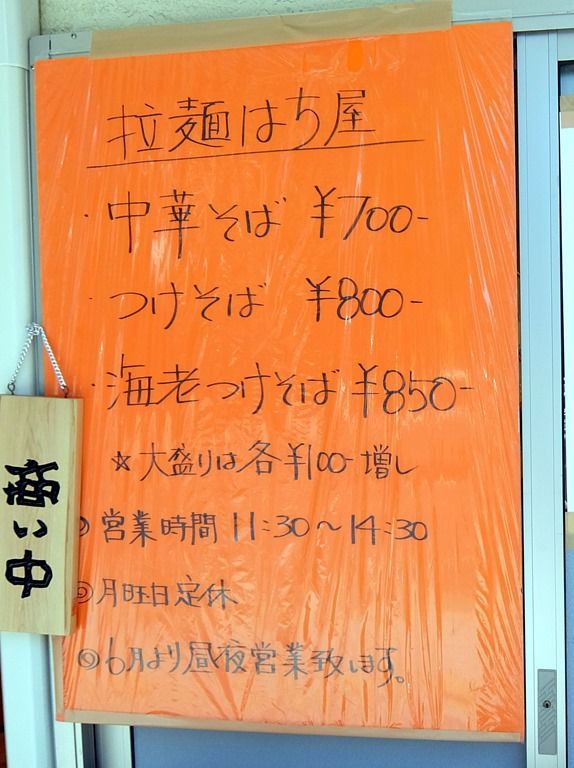 拉麺はち屋
・中華そば ¥700-
・つけそば ¥800-
・海老つけそば ¥850-
☆大盛りは各¥100-増し
◎営業時間 11:30〜14:30
◎月旺日定休
◎6月より昼夜営業致します。
商い中